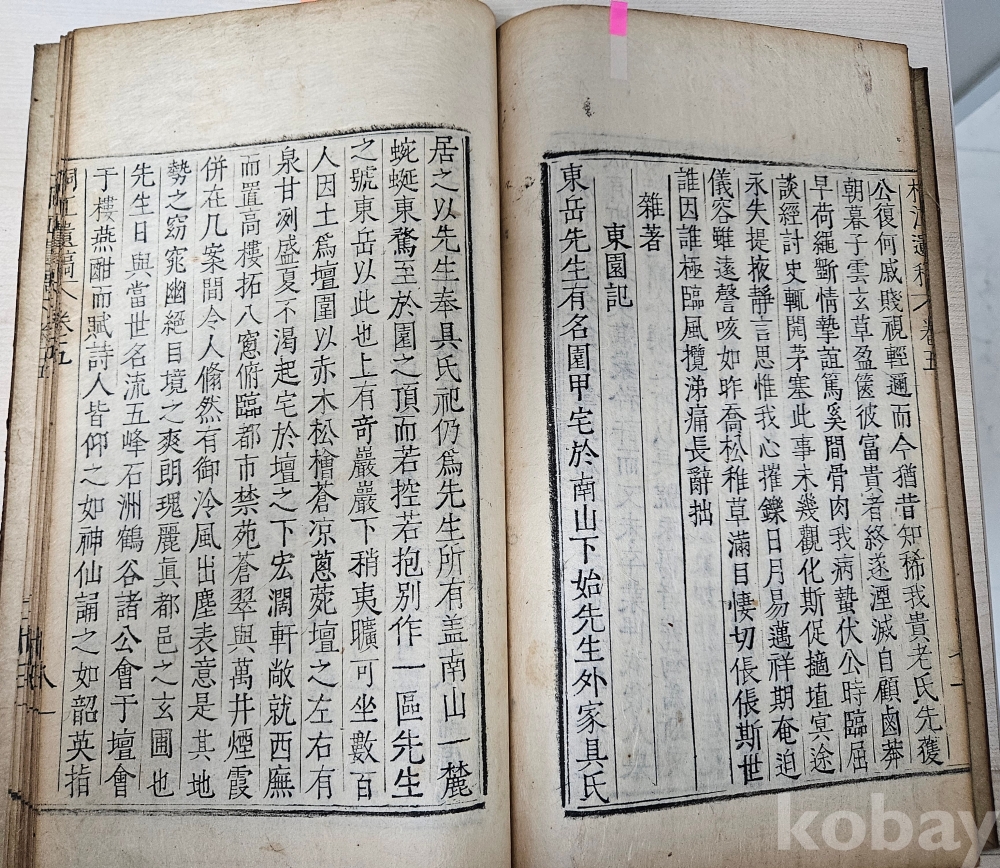 公復何戚賤視輕邇而今猶昔知稀我貴老氏先獲
朝暮子雲玄草盈篋彼富貴者終遂湮滅自顧鹵莽
早荷繩斵情摯誼篤奚間骨肉我病蟄伏公時臨屈
談經討史輒開茅塞此事未幾觀化斯促擿埴冥途
永失提掖靜言思惟我心摧鑠日月易邁祥期奄迫
儀容雖遠謦咳如昨喬松稚草滿目悽切倀倀斯世
誰因誰極臨風攬涕痛長辭拙
雜著
東園記
東岳先生有名園甲宅於南山下始先生外家具氏
居之以先生奉具氏祀仍爲先生所有盖南山一麓
蜿蜒東騖至於園之頂而若控若抱別作一區先生
之號東岳以此也上有奇巖巖下稍夷曠可坐數百
人因土爲壇圍以赤木松檜蒼凉蔥菀壇之左右有
泉甘冽盛夏不渴起宅於壇之下宏濶軒敞就西廡
而置高樓拓八窓俯臨都市禁苑蒼翠與萬井煙霞
併在几案間令人翛然有御泠風出塵表意是其地
勢之窈窕幽絕目境之爽朗瑰麗眞都邑之玄圃也
先生日與當世名流五峰石洲鶴谷諸公會于壇會
于樓燕酣而賦詩人皆仰之如神仙誦之如韶英指
kobay